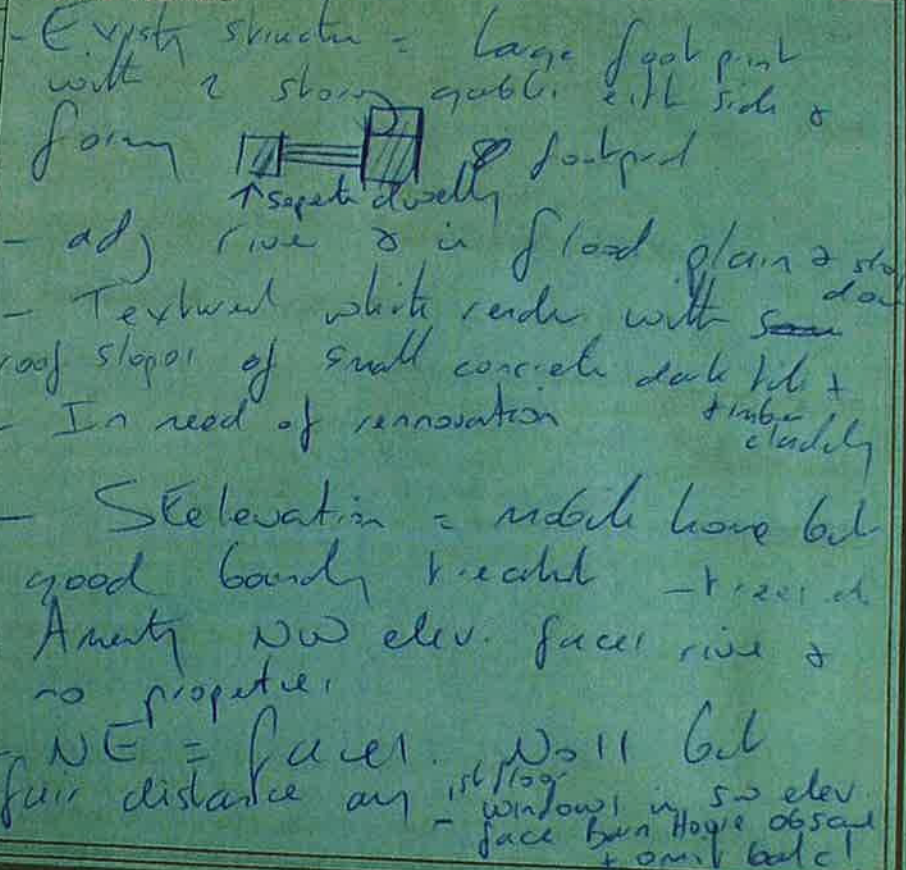 - Existg structure = large footprint
with 2 storey gable either side &
formg footprint
↑ seperate dwelling
- adj river & in flood plain &
- Textured white render with
roof slopes of small concrete dark tile +
timber cladding
- In need of rennovation
- SE elevation = mobile home but
good boundy treatmt - trees etc
Amenity NW elev. faces river &
no properties
- NE = faces. No 11 but
fair distance awy
- 1st floor windows in SW elev.
face Barn House obscure
+ omit balc